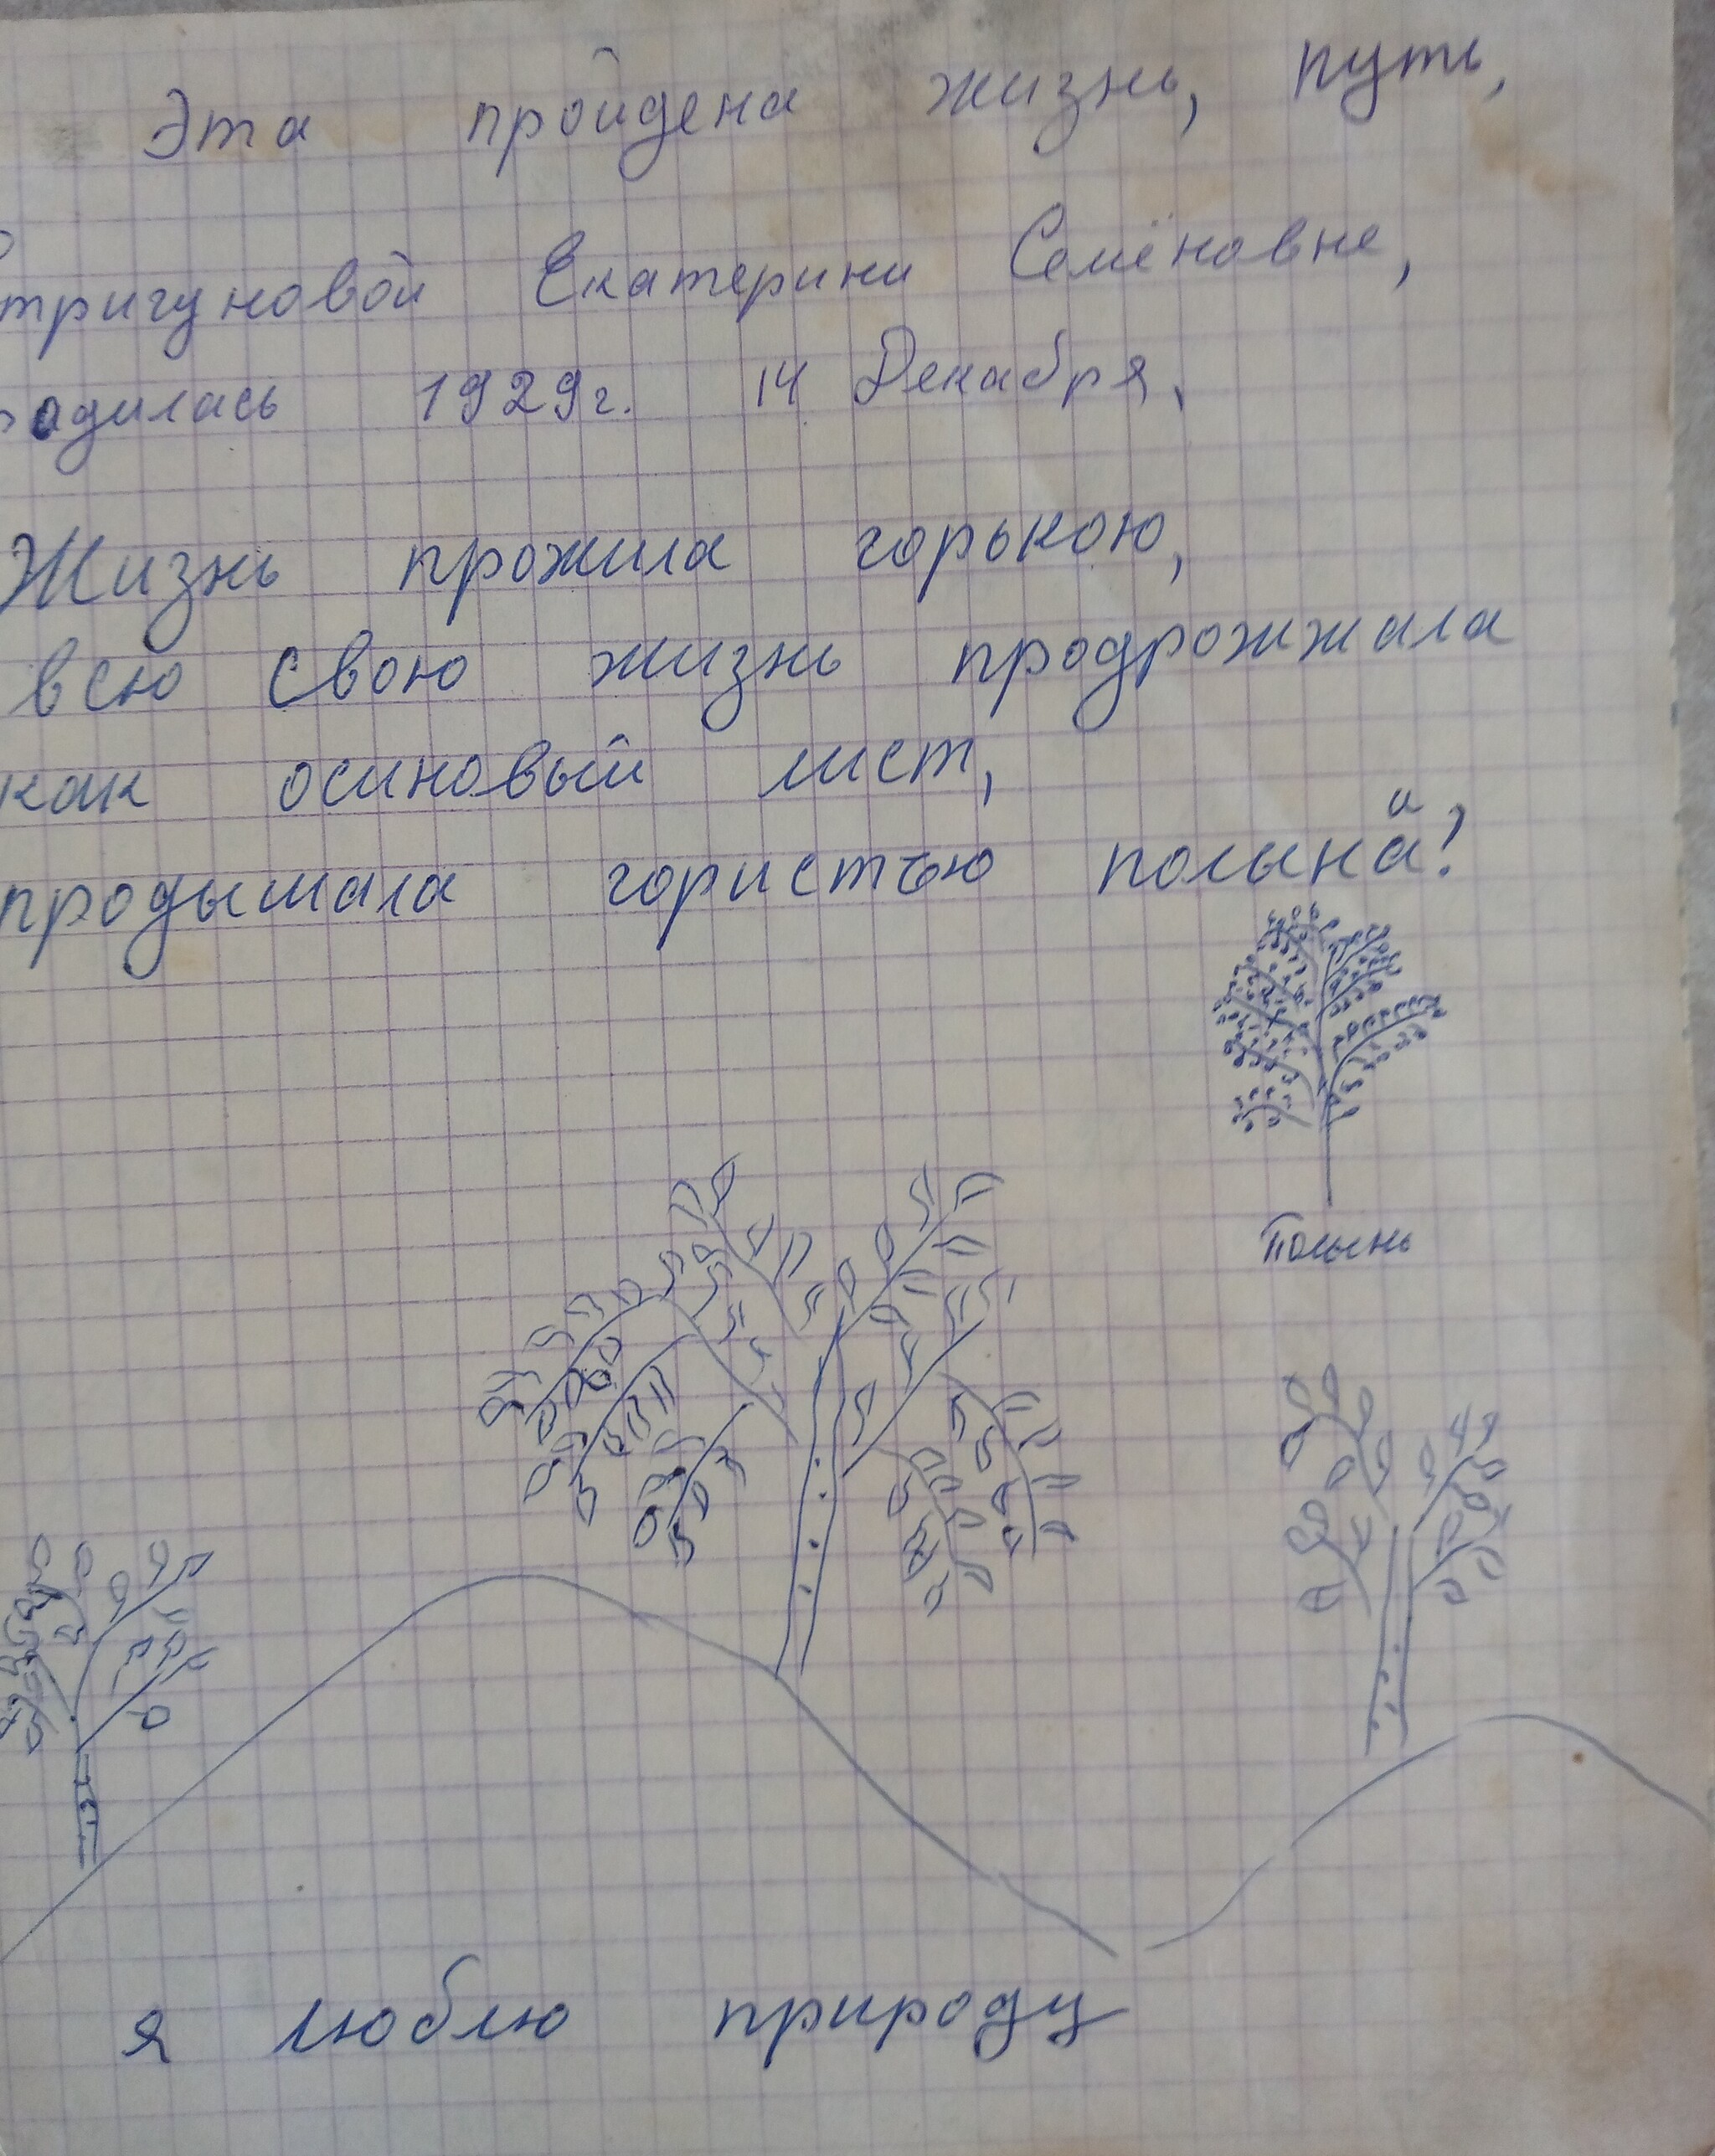 Эта пройдена жизнь, путь,
Стригуновой Екатерини Семёновне,
родилась 1929г. 14 Декабря,
Жизнь прожила горькою,
всю свою жизнь продрожжала
как осиновый лист,
продышала гористъю полына!
Полынь
я люблю природу